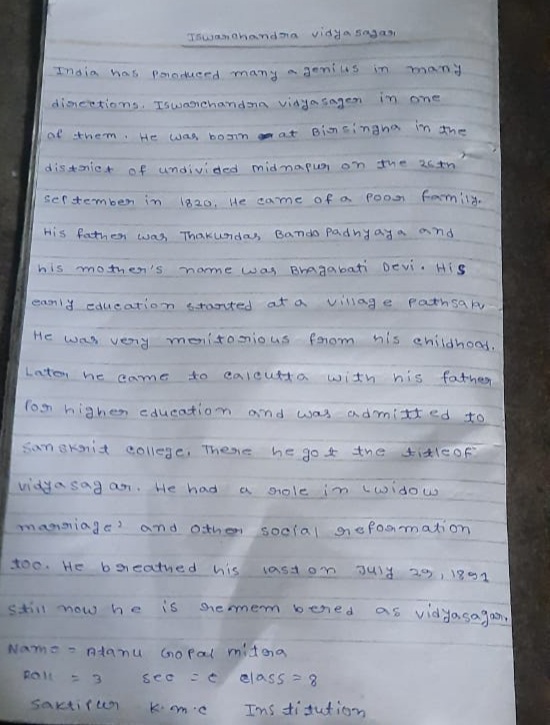 Iswarchandra vidyasagar
India has produced many a genius in many
directions. Iswarchandra vidyasager in one
of them. He was born at Birsingha in the
district of undivided midnapur on the 26th
september in 1820. He came of a poor family.
His father was Thakurdas Bando Padhyaya and
his mother's name was Bhagabati Devi. His
early education started at a village pathsala
He was very meritorious from his childhood.
Later he came to calcutta with his father
for higher education and was admitted to
sanskrit college. There he got the title of
vidyasagar. He had a role in 'widow
marriage' and other social reformation
too. He breathed his last on July 29, 1891
still now he is remembered as vidyasagar.
Name = Atanu Gopal mitra
Roll = 3 sec = c class = 8
Saktipur K.m.c Institution